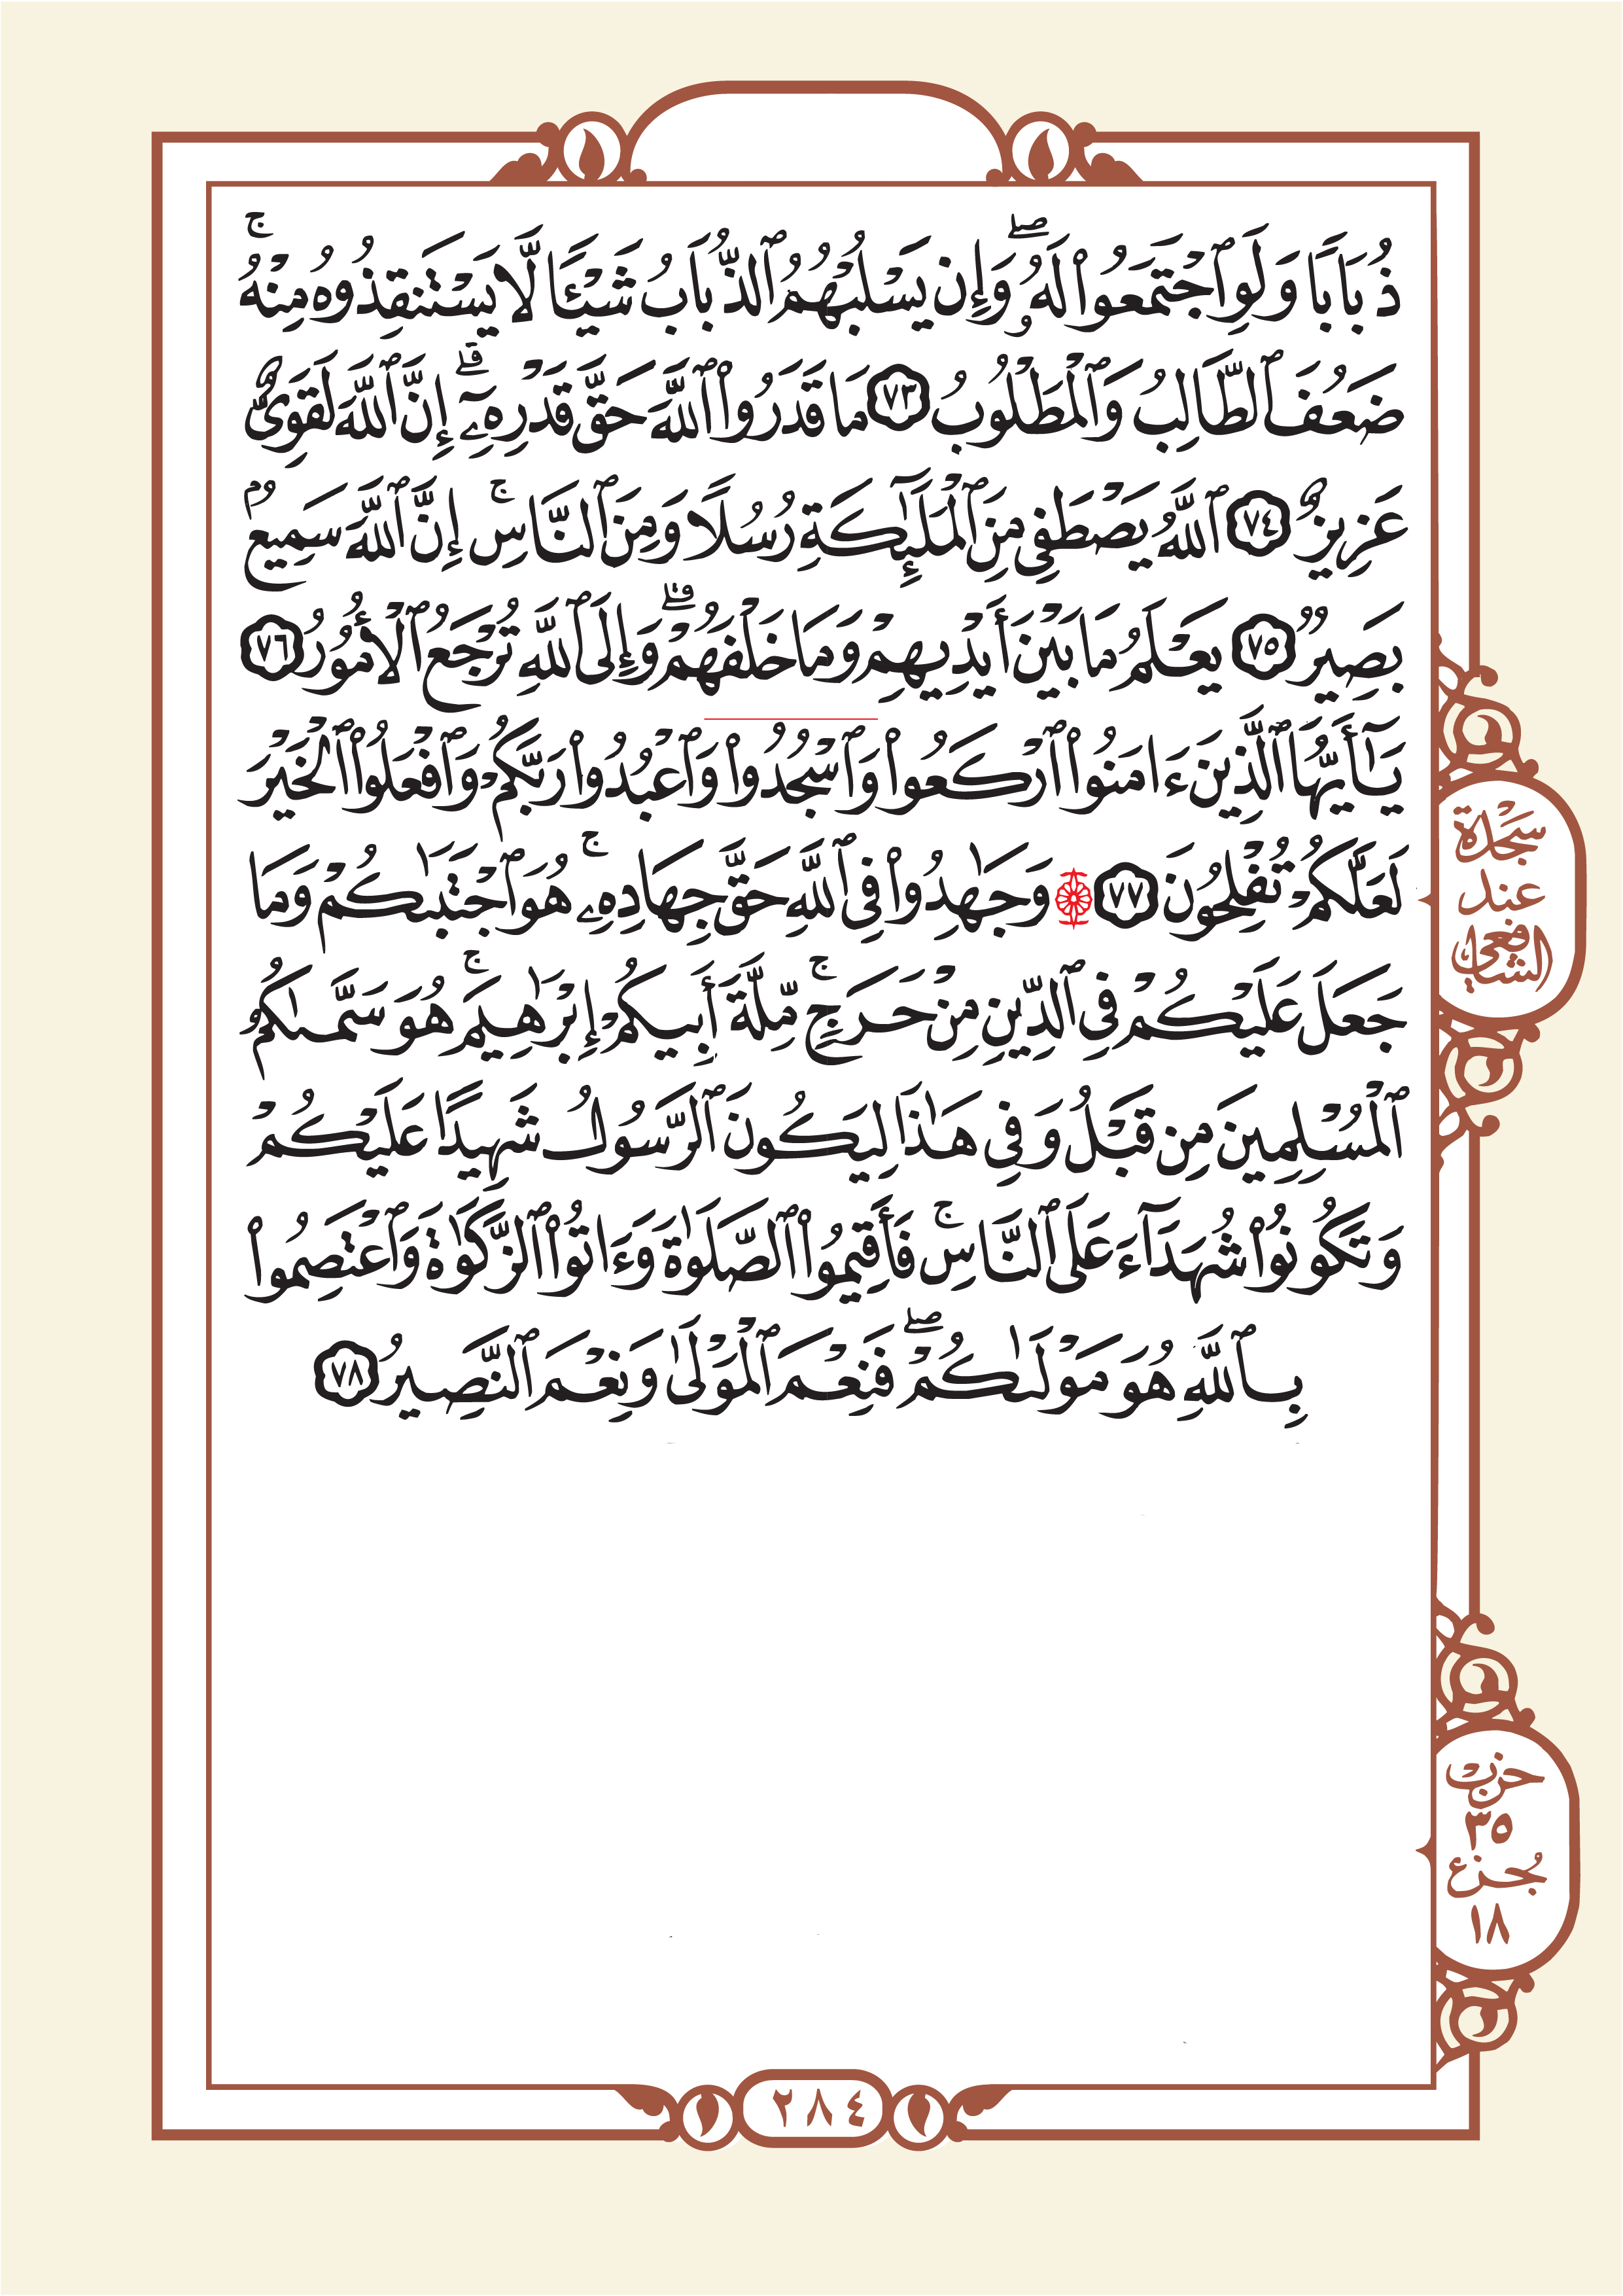 ذُبَابًا وَلَوِ ٱجْتَمَعُوا۟ لَهُۥ ۖ وَإِن يَسْلُبْهُمُ ٱلذُّبَابُ شَيْـًٔا لَّا يَسْتَنقِذُوهُ مِنْهُ ۚ
ضَعُفَ ٱلطَّالِبُ وَٱلْمَطْلُوبُ ٧٣ مَا قَدَرُوا۟ ٱللَّهَ حَقَّ قَدْرِهِۦٓ ۗ إِنَّ ٱللَّهَ لَقَوِىٌّ
عَزِيزٌ ٧٤ ٱللَّهُ يَصْطَفِى مِنَ ٱلْمَلَـٰٓئِكَةِ رُسُلًا وَمِنَ ٱلنَّاسِ ۚ إِنَّ ٱللَّهَ سَمِيعٌۢ
بَصِيرٌ ٧٥ يَعْلَمُ مَا بَيْنَ أَيْدِيهِمْ وَمَا خَلْفَهُمْ ۗ وَإِلَى ٱللَّهِ تُرْجَعُ ٱلْأُمُورُ ٧٦
يَـٰٓأَيُّهَا ٱلَّذِينَ ءَامَنُوا۟ ٱرْكَعُوا۟ وَٱسْجُدُوا۟ وَٱعْبُدُوا۟ رَبَّكُمْ وَٱفْعَلُوا۟ ٱلْخَيْرَ
لَعَلَّكُمْ تُفْلِحُونَ ٧٧ وَجَـٰهِدُوا۟ فِى ٱللَّهِ حَقَّ جِهَادِهِۦ ۚ هُوَ ٱجْتَبَىٰكُمْ وَمَا
جَعَلَ عَلَيْكُمْ فِى ٱلدِّينِ مِنْ حَرَجٍ ۚ مِّلَّةَ أَبِيكُمْ إِبْرَٰهِيمَ ۚ هُوَ سَمَّىٰكُمُ
ٱلْمُسْلِمِينَ مِن قَبْلُ وَفِى هَـٰذَا لِيَكُونَ ٱلرَّسُولُ شَهِيدًا عَلَيْكُمْ
وَتَكُونُوا۟ شُهَدَآءَ عَلَى ٱلنَّاسِ ۚ فَأَقِيمُوا۟ ٱلصَّلَوٰةَ وَءَاتُوا۟ ٱلزَّكَوٰةَ وَٱعْتَصِمُوا۟
بِٱللَّهِ هُوَ مَوْلَىٰكُمْ ۖ فَنِعْمَ ٱلْمَوْلَىٰ وَنِعْمَ ٱلنَّصِيرُ ٧٨
سَجْدَة
عند
الشافعي
حزب
٣٥
جُزء
١٨
٢٨٤